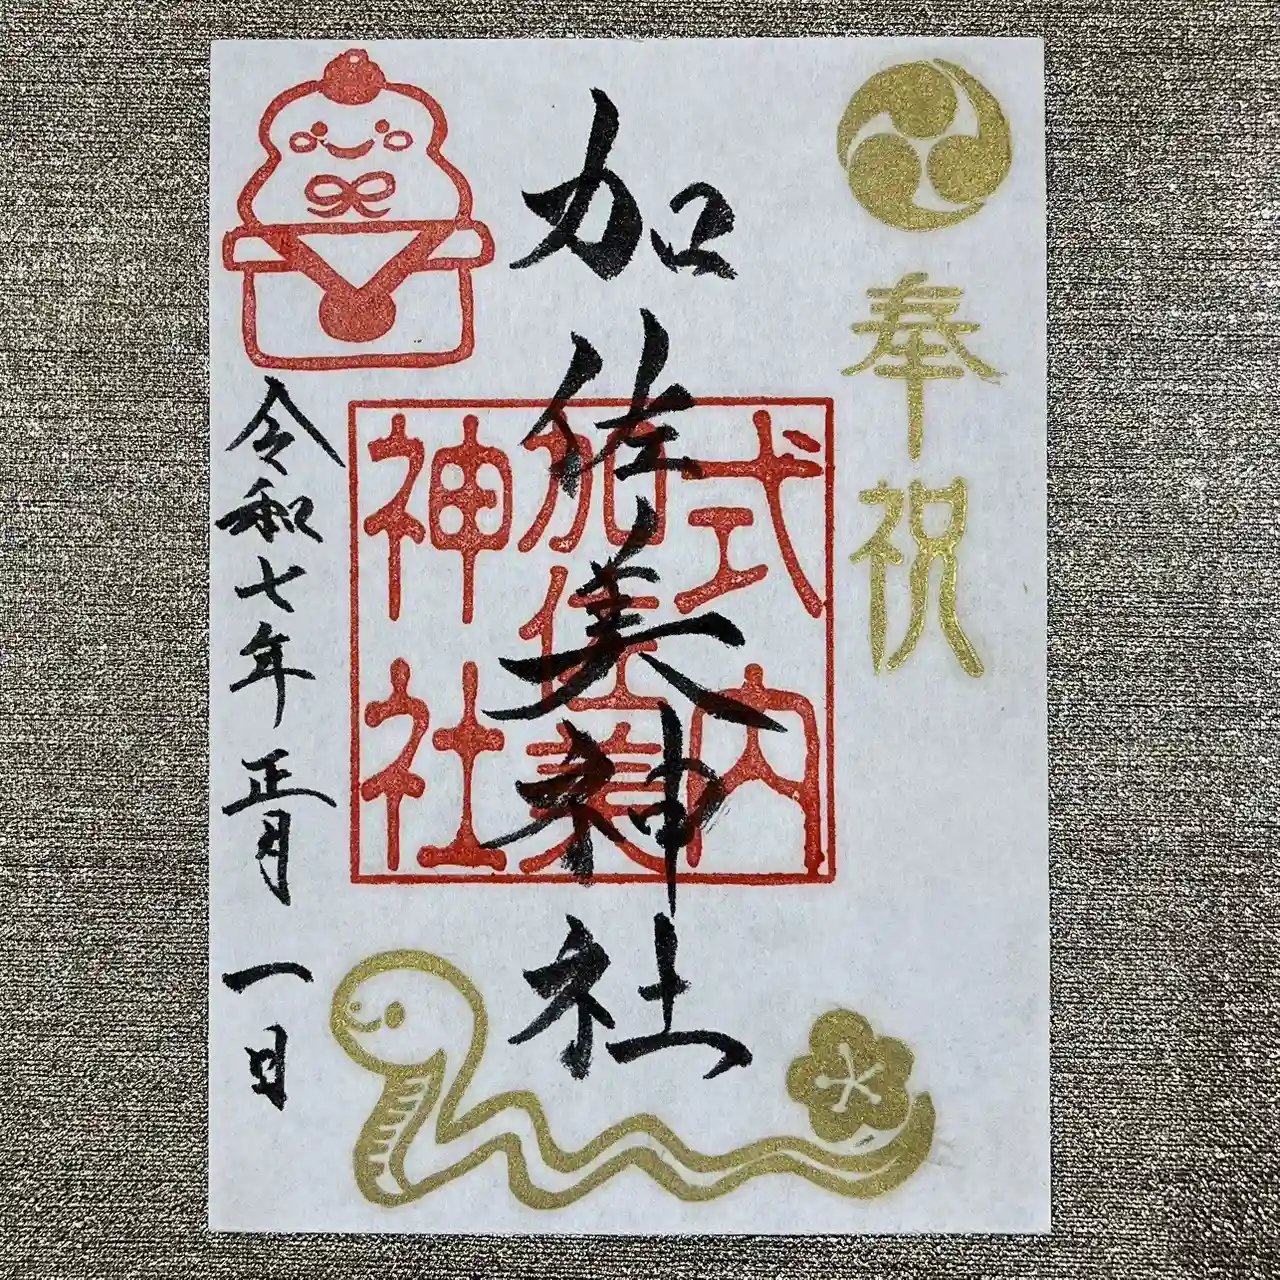 奉祝
加佐美神社
式内
加佐美
神社
令和七年正月一日